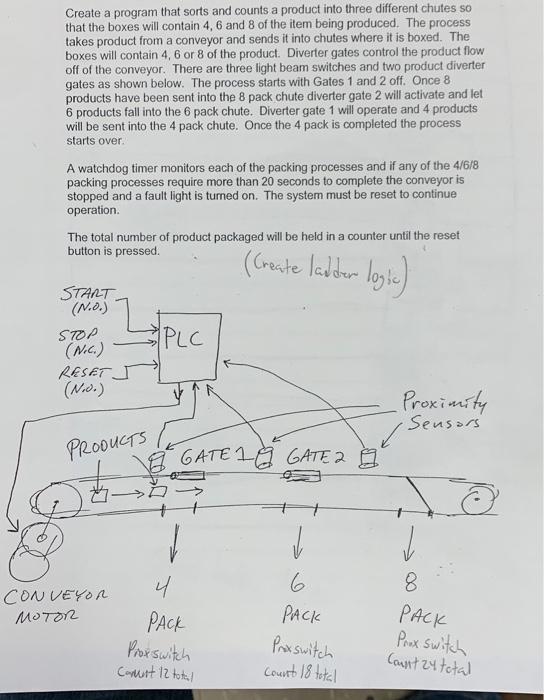 Create a program that sorts and counts a product into three different chutes so
that the boxes will contain 4, 6 and 8 of the item being produced. The process
takes product from a conveyor and sends it into chutes where it is boxed. The
boxes will contain 4, 6 or 8 of the product. Diverter gates control the product flow
off of the conveyor. There are three light beam switches and two product diverter
gates as shown below. The process starts with Gates 1 and 2 off. Once 8
products have been sent into the 8 pack chute diverter gate 2 will activate and let
6 products fall into the 6 pack chute. Diverter gate 1 will operate and 4 products
will be sent into the 4 pack chute. Once the 4 pack is completed the process
starts over.
A watchdog timer monitors each of the packing processes and if any of the 4/6/8
packing processes require more than 20 seconds to complete the conveyor is
stopped and a fault light is turned on. The system must be reset to continue
operation.
The total number of product packaged will be held in a counter until the reset
button is pressed.
(Create ladder logic)
START
(N.O.)
STOP
(N.C.)
RESET
(N.O.)
PLC
Proximity
Sensors
PRODUCTS
GATE 1
GATE 2
CONVEYOR
MOTOR
4
PACK
Prox switch
Count 12 total
6
PACK
Prox switch
Count 18 total
8
PACK
Prox switch
Count 24 total